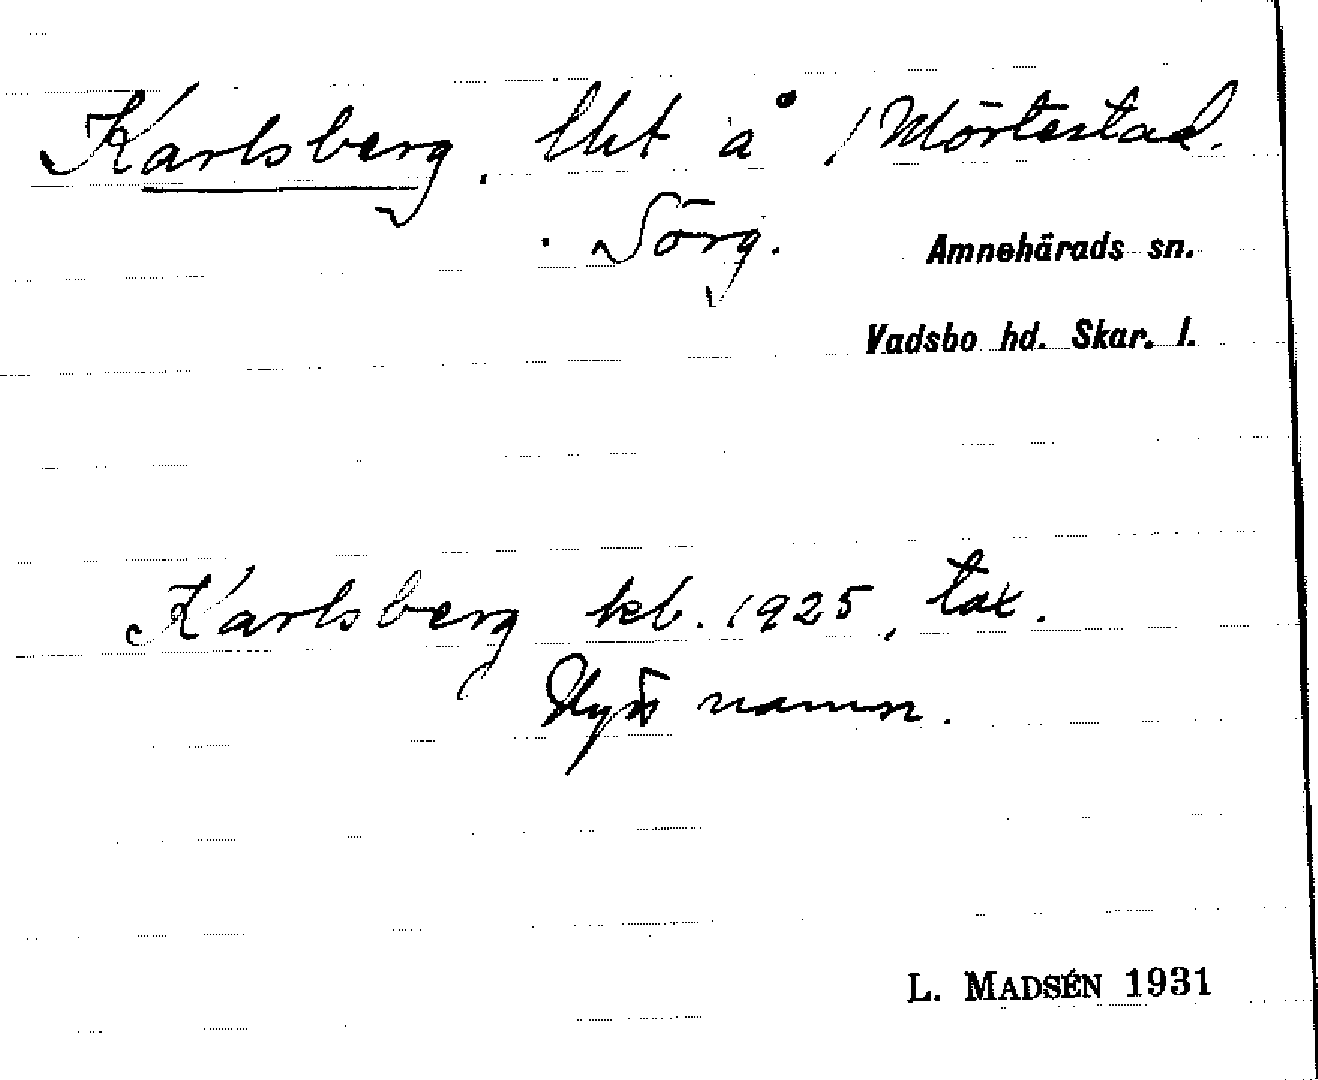 Karlsberg, lht å 1 Mörtestad.
Sörg.
Amnehärads sn.
Vadsbo hd. Skar. l.
Karlsberg kb. 1925, tax.
Nytt namn.
L. MADSÉN 1931